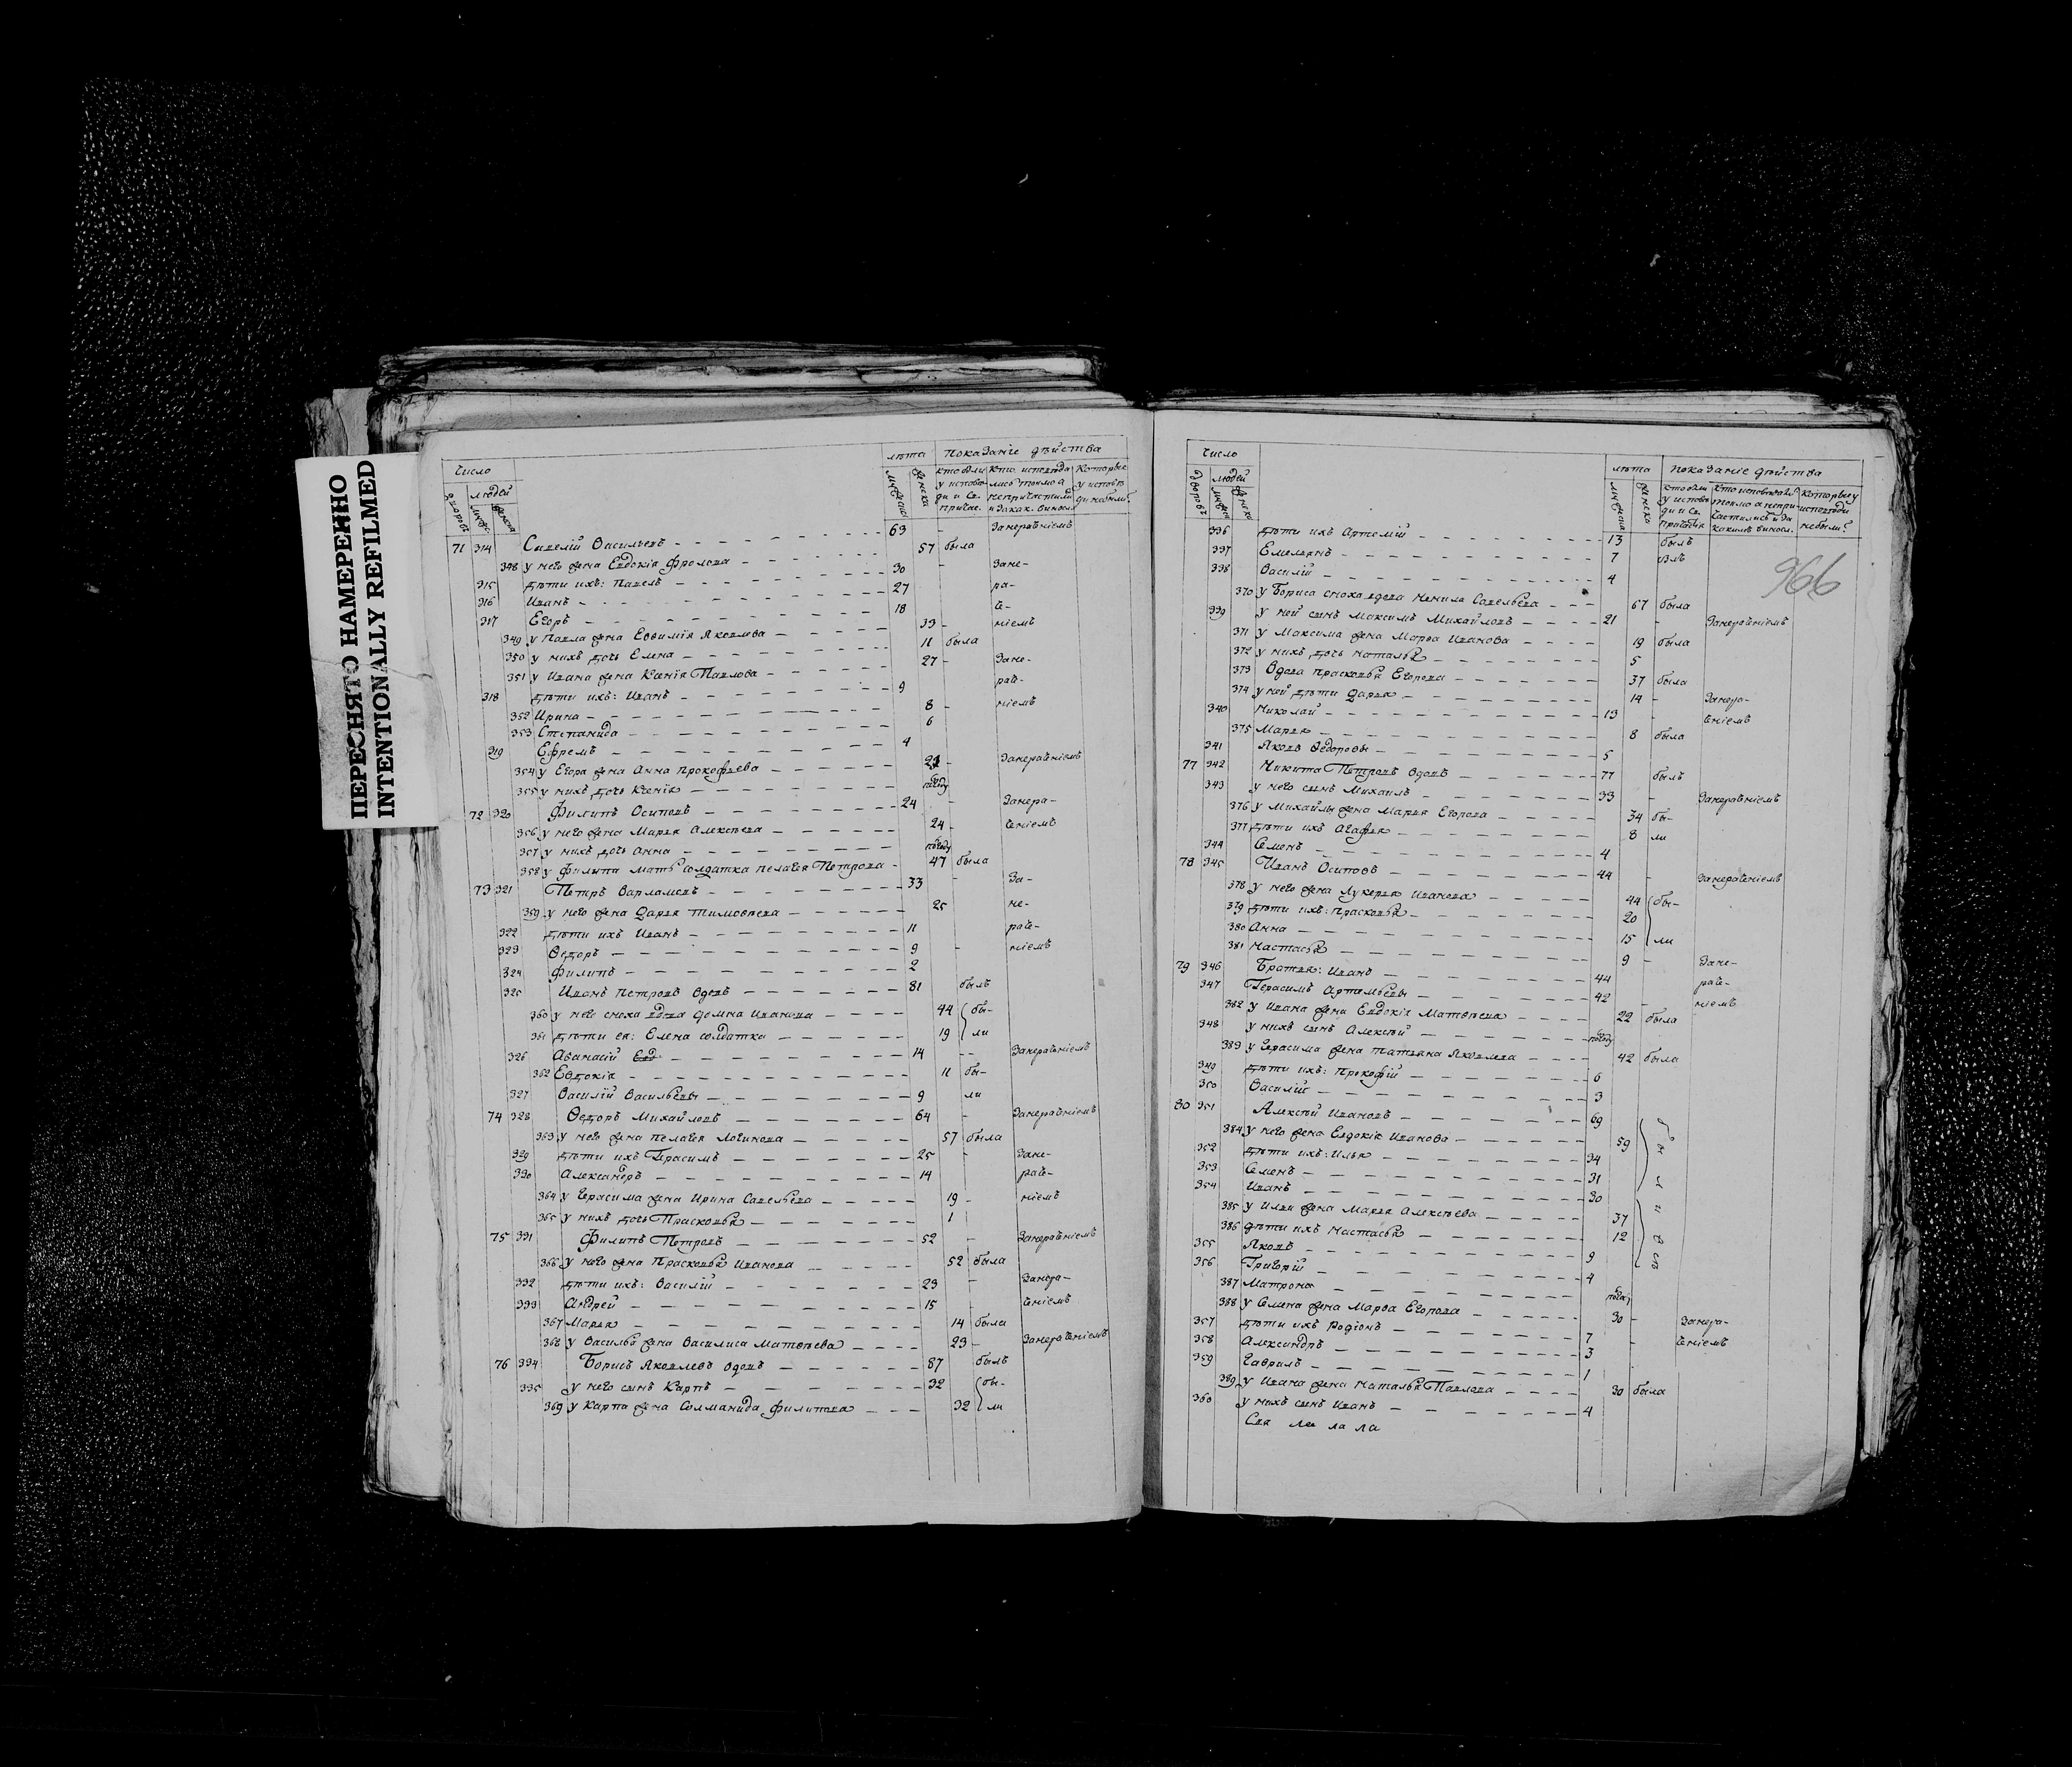 ПЕРЕСНЯТО НАМЕРЕННО
INTENTIONALLY REFILMED
Число лѣта показанїе дѣйства
людей
71 314 Савелїй Васильевъ 63 - Занерѣнїемъ
348 у него жена Евдокїа Фролова 57 была
315 дѣти ихъ: Павелъ 30 - Зане-
316 Иванъ 27 ра-
317 Егоръ 18 ѣ-
349 у Павла жена Евѳимїя Яковлева 33 - нїемъ
350 у нихъ дочь Елена 11 была
351 у Ивана жена Ксенїя Павлова 27 - Зане-
318 дѣти ихъ: Иванъ 9 раѣ-
352 Ирина 8 - нїемъ
353 Степанида 6
319 Ефремъ 4
354 у Егора жена Анна Прокофьева - Занераѣнїемъ
355 у нихъ дочь Ксенїя полгоду
72 320 Филипъ Осиповъ 24 - Занера-
356 у него жена Марья Алексѣева 24 - ѣнїемъ
357 у нихъ дочь Анна полгоду
358 у Филипа мать солдатка Пелагея Петрова 47 была
73 321 Петръ Варламовъ 33 - За-
359 у него жена Дарья Тимоѳеева 25 не-
322 дѣти ихъ Иванъ 11 раѣ-
323 Ѳедоръ 9 - нїемъ
324 Филипъ 2
325 Иванъ Петровъ вдовъ 81 былъ
360 у него сноха вдова Домна Иванова 44 бы-
361 дѣти ея: Елена солдатка 19 ли
326 Аѳанасїй 14 -- Занераѣнїемъ
362 Евдокїя 11 бы-
327 Василїй Васильевы 9 ли
74 328 Ѳедоръ Михайловъ 64 - Занераѣнїемъ
363 у него жена Пелагея Логинова 57 была
329 дѣти ихъ Герасимъ 25 - Зане-
330 Александръ 14 раѣ-
364 у Герасима жена Ирина Савельева 19 - нїемъ
365 у нихъ дочь Прасковья 1
75 331 Филипъ Петровъ 52 - Занераѣнїемъ
366 у него жена Прасковья Иванова 52 была
332 дѣти ихъ: Василїй 23 - Занера-
333 Андрей 15 ѣнїемъ
367 Марья 14 была
368 у Василья жена Василиса Матвѣева 23 - Занераѣнїемъ
76 334 Борисъ Яковлевъ вдовъ 87 былъ
335 у него сынъ Карпъ 32 бы-
369 у Карпа жена Соломанида Филипова 32 ли
Число лѣта показанїе дѣйства
людей
966
336 дѣти ихъ Артемїй 13 былъ
337 Емельянъ 7
338 Василїй 4
370 у Бориса сноха вдова Ненила Савельева 67 была
339 у ней сынъ Максимъ Михайловъ 21 - Занераѣнїемъ
371 у Максима жена Марѳа Иванова 19 была
372 у нихъ дочь Наталья 5
373 Вдова Прасковья Егорова 37 была
374 у ней дѣти Дарья 14 - Занера-
340 Николай 13 - ѣнїемъ
375 Марья 8 была
341 Яковъ Ѳедоровы 5
77 342 Никита Петровъ вдовъ 77 былъ
343 у него сынъ Михаилъ 33 - Занераѣнїемъ
376 у Михайлы жена Марья Егорова 34 бы-
377 дѣти ихъ Агафья 8 ли
344 Семенъ 4
78 345 Иванъ Осиповъ 44 - Занераѣнїемъ
378 у него жена Лукерья Иванова 44 бы-
379 дѣти ихъ: Прасковья 20
380 Анна 15 ли
381 Настасья 9 - Зане-
79 346 Братья: Иванъ 44 раѣ-
347 Герасимъ Артемьевы 42 - нїемъ
382 у Ивана жена Евдокїя Матвѣева 22 была
348 у нихъ сынъ Алексѣй полгоду
383 у Герасима жена Татьяна Яковлева 42 была
349 дѣти ихъ: Прокофїй 6
350 Василїй 3
80 351 Алексѣй Ивановъ 69
384 у него жена Евдокїя Иванова 59
352 дѣти ихъ: Илья 34
353 Семенъ 31
354 Иванъ 30
385 у Ильи жена Марья Алексѣева 37
386 дѣти ихъ Настасья 12
355 Яковъ 9
356 Григорїй 4
387 Матрона
388 у Семена жена Марѳа Егорова 30 - Занера-
357 дѣти ихъ Родїонъ 7 ѣнїемъ
358 Александръ 3
359 Гаврилъ 1
389 у Ивана жена Наталья Павлова 30 была
360 у нихъ сынъ Иванъ 4